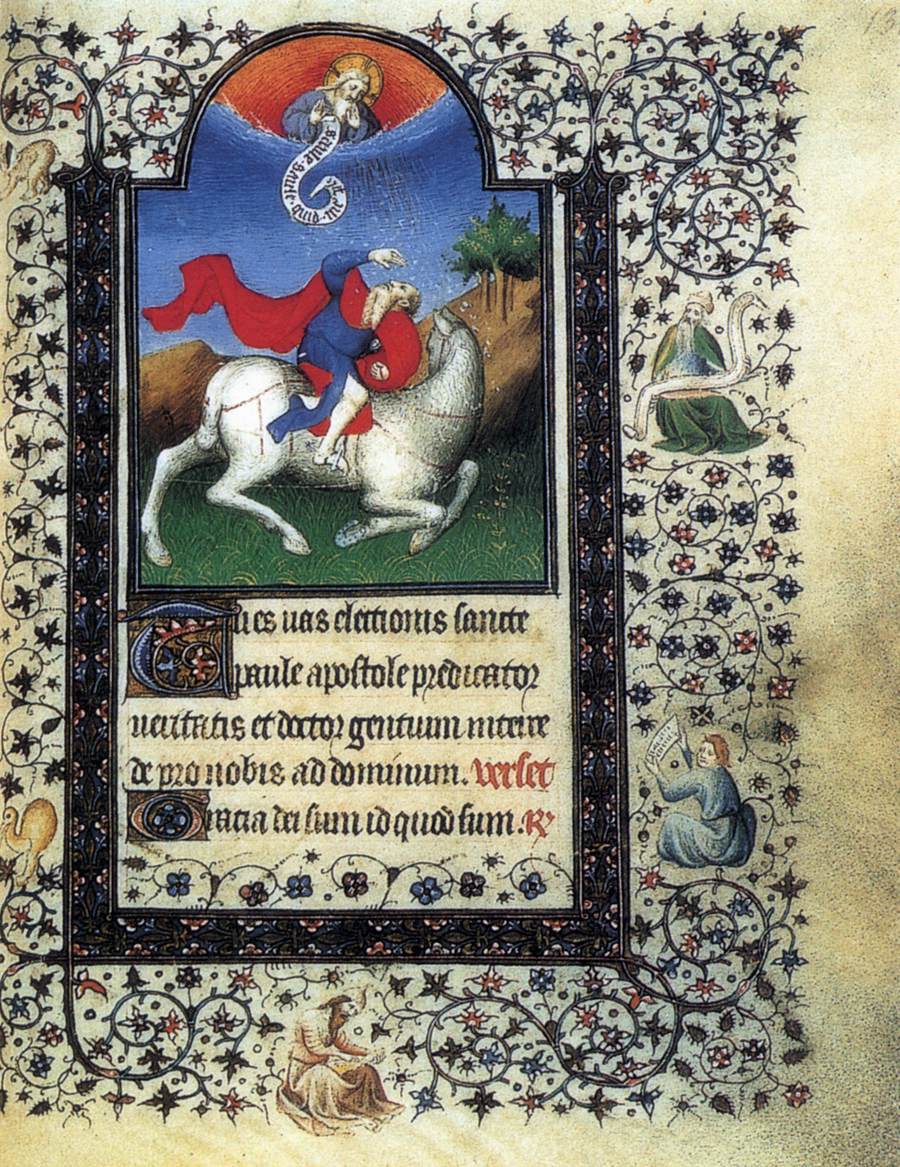 13
saule saule quid me
Tu es uas electionis sancte
paule apostole predicator
ueritatis et doctor gentium interce
de pro nobis ad dominum. verset
Gracia dei sum id quod sum. R